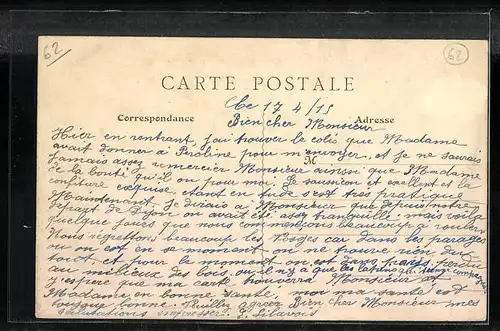 62
62
CARTE POSTALE
Le 17/4/15
Correspondance
Adresse
Bien cher Monsieur
Hier en rentrant, j'ai trouver le colis que Madame
avait donner a pour m'envoyer, et je ne saurais
M
jamais assez remercier Monsieur ainsi que Madame
de la bonté qu'il ont pour moi. Le saucisson et exellent et la
confiture exquise, étant en tube s'est très pratique
Maintenant je dirais a Monsieur que depuis notre
depart de Dijon on avait été assez tranquille mais voila
quelque jours que nous commencions beaucoup a rouler
Nous regrettons beaucoup les Vosges car dans les parages
ou on est en se moment on ne trouve rien du
tout, et pour le moment on est dans
au milieux des bois, ou il n'y a que les qui
J'espère que ma carte trouvera Monsieur et
Madame en bonne santé, moi ma santé est
bonne. Veuillez agréer Bien cher Monsieur mes
salutations